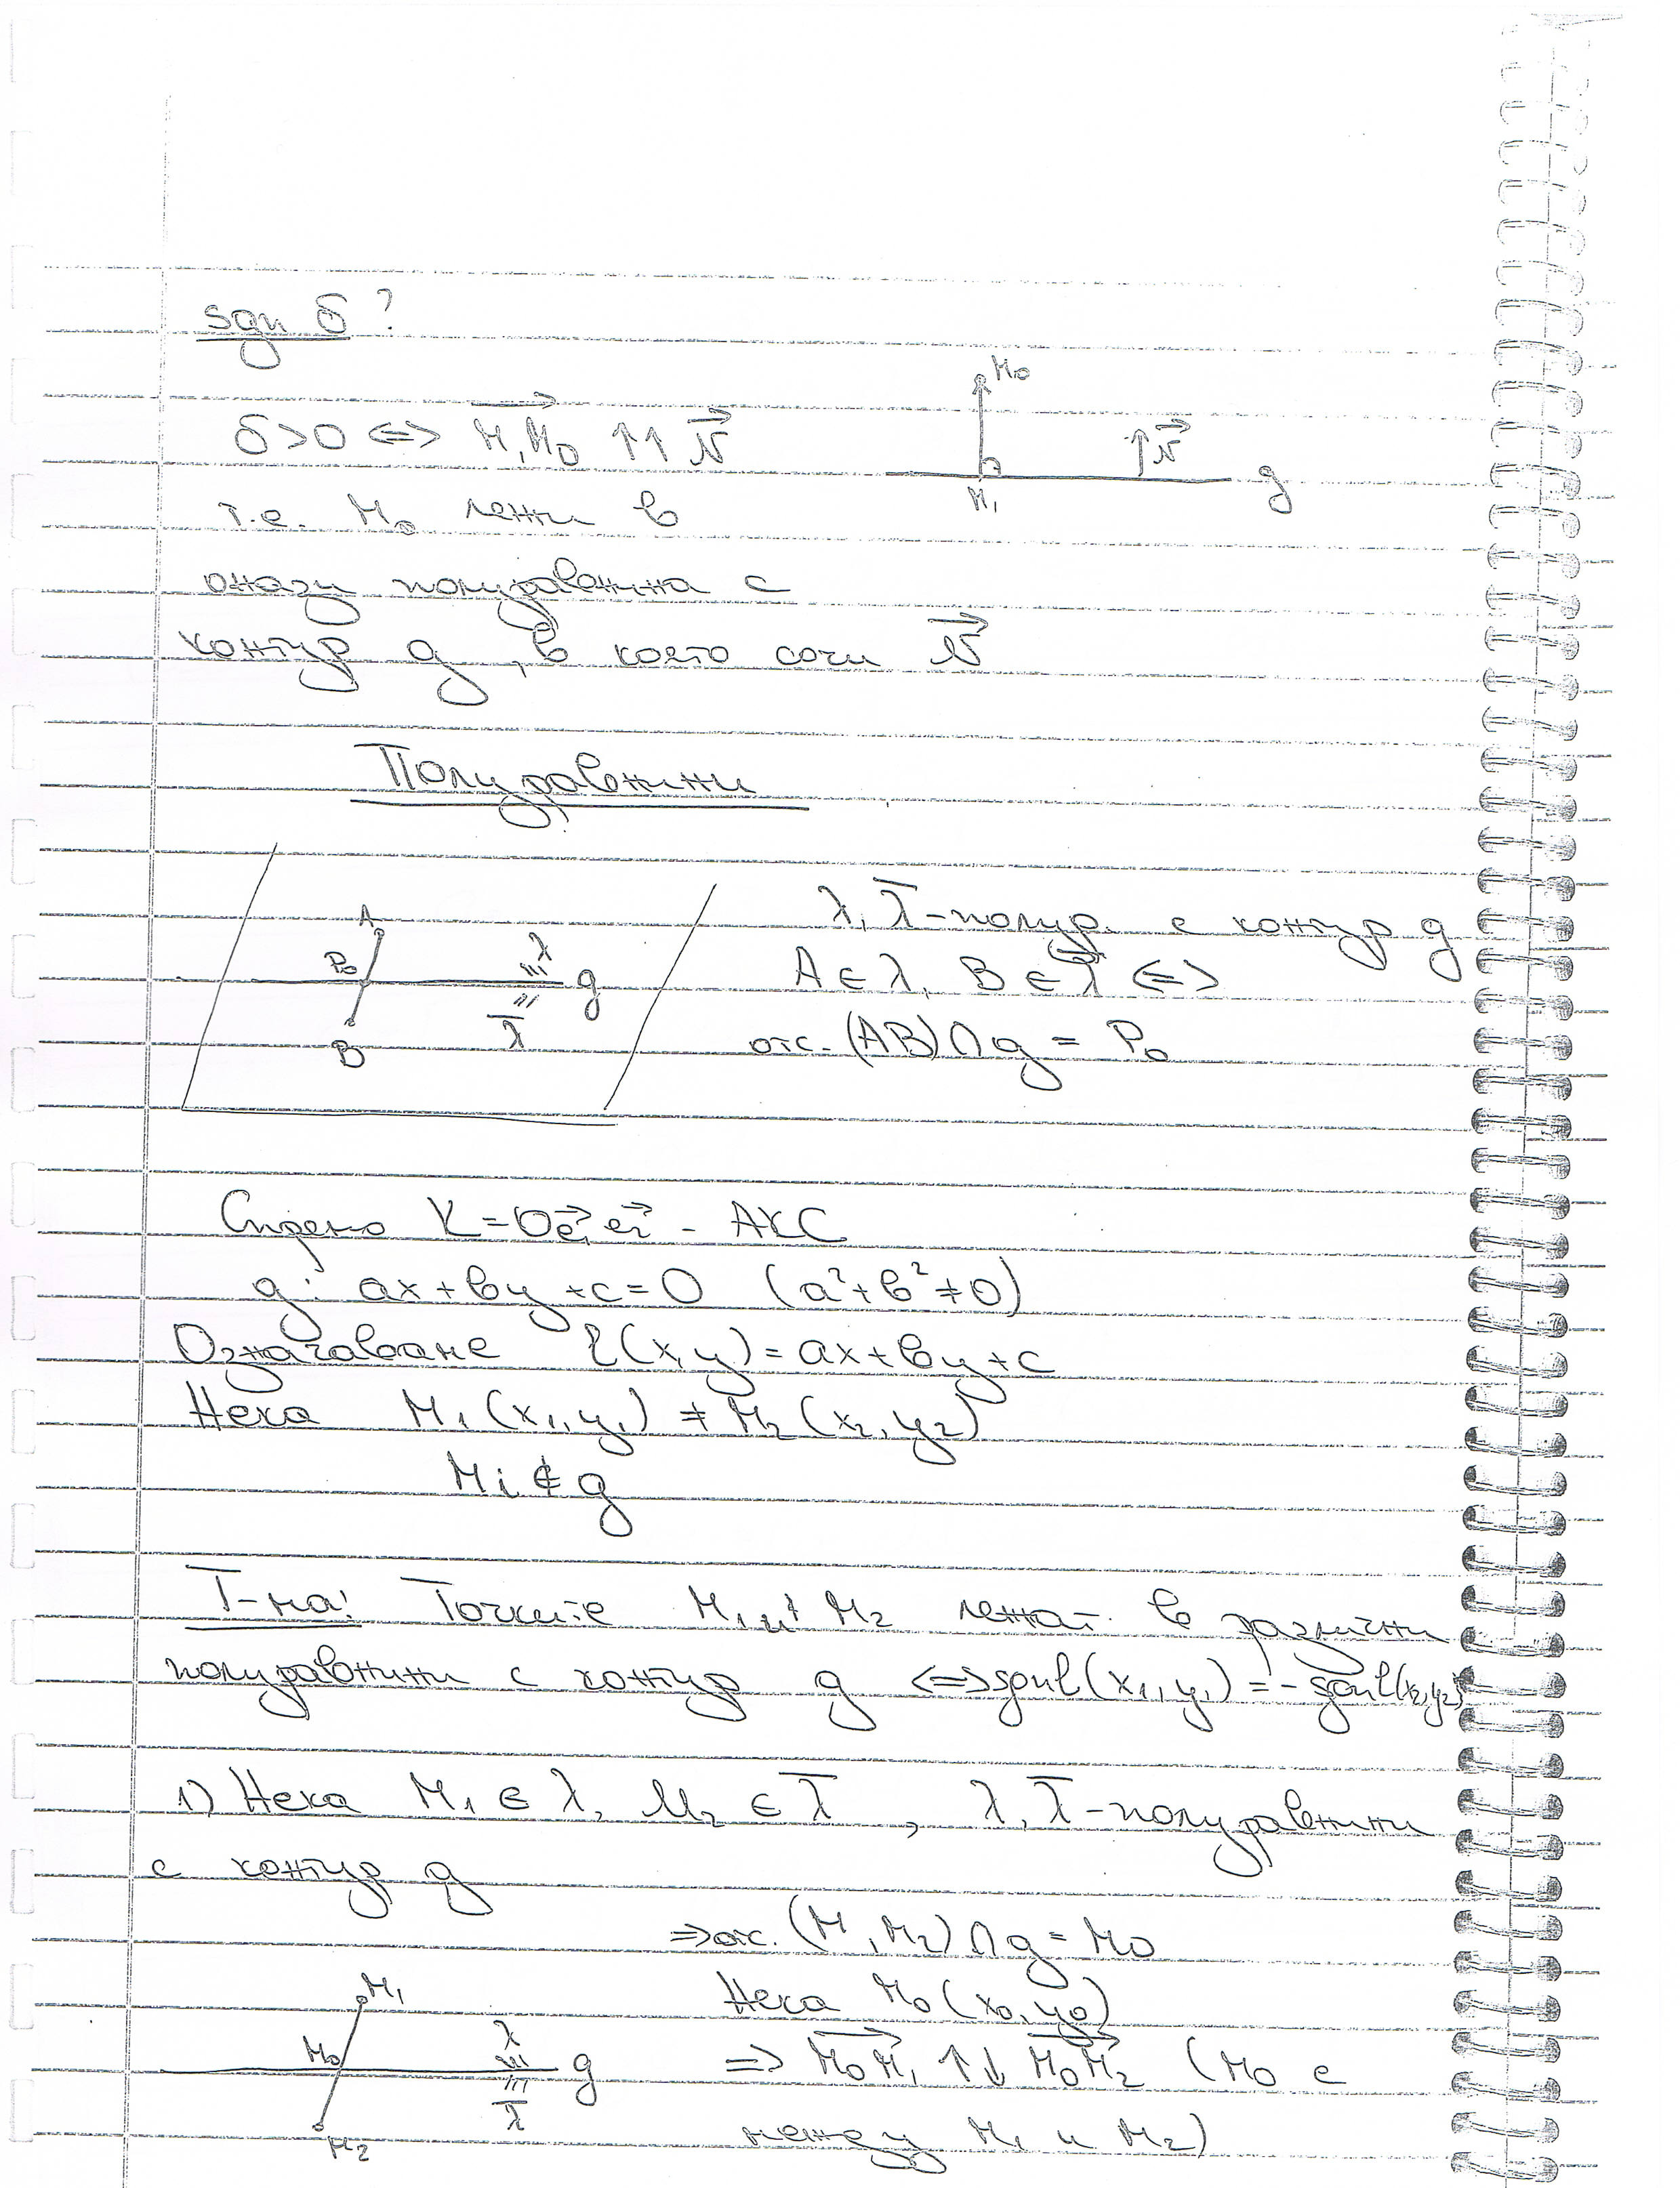 sgn δ ?
M₀
δ>0 <=> M₁M₀ ↑↑ N
N
g
M₁
т.е. M₀ лежи в
онази полуравнина с
контур g, в която сочи N
Полуравнини
λ, λ̄ - полур. с контур g
A
P₀
λ
g
A ∈ λ, B ∈ λ̄ <=>
λ̄
B
отс. (AB) ∩ g = P₀
Спрямо K = Oe₁e₂ - АКС
g: ax+by+c=0 (a²+b²≠0)
Означаваме l(x,y)=ax+by+c
Нека M₁(x₁,y₁) ≠ M₂(x₂,y₂)
Mi ∉ g
Т-ма: Точките M₁ и M₂ лежат в различни
полуравнини с контур g <=> sgn l(x₁,y₁) = - sgn l(x₂,y₂)
1) Нека M₁ ∈ λ, M₂ ∈ λ̄, λ, λ̄ - полуравнини
с контур g
=> отс. (M₁M₂) ∩ g = M₀
M₁
Нека M₀(x₀,y₀)
M₀
λ
g
=> M₀M₁ ↑↓ M₀M₂ (M₀ е
λ̄
M₂
между M₁ и M₂)